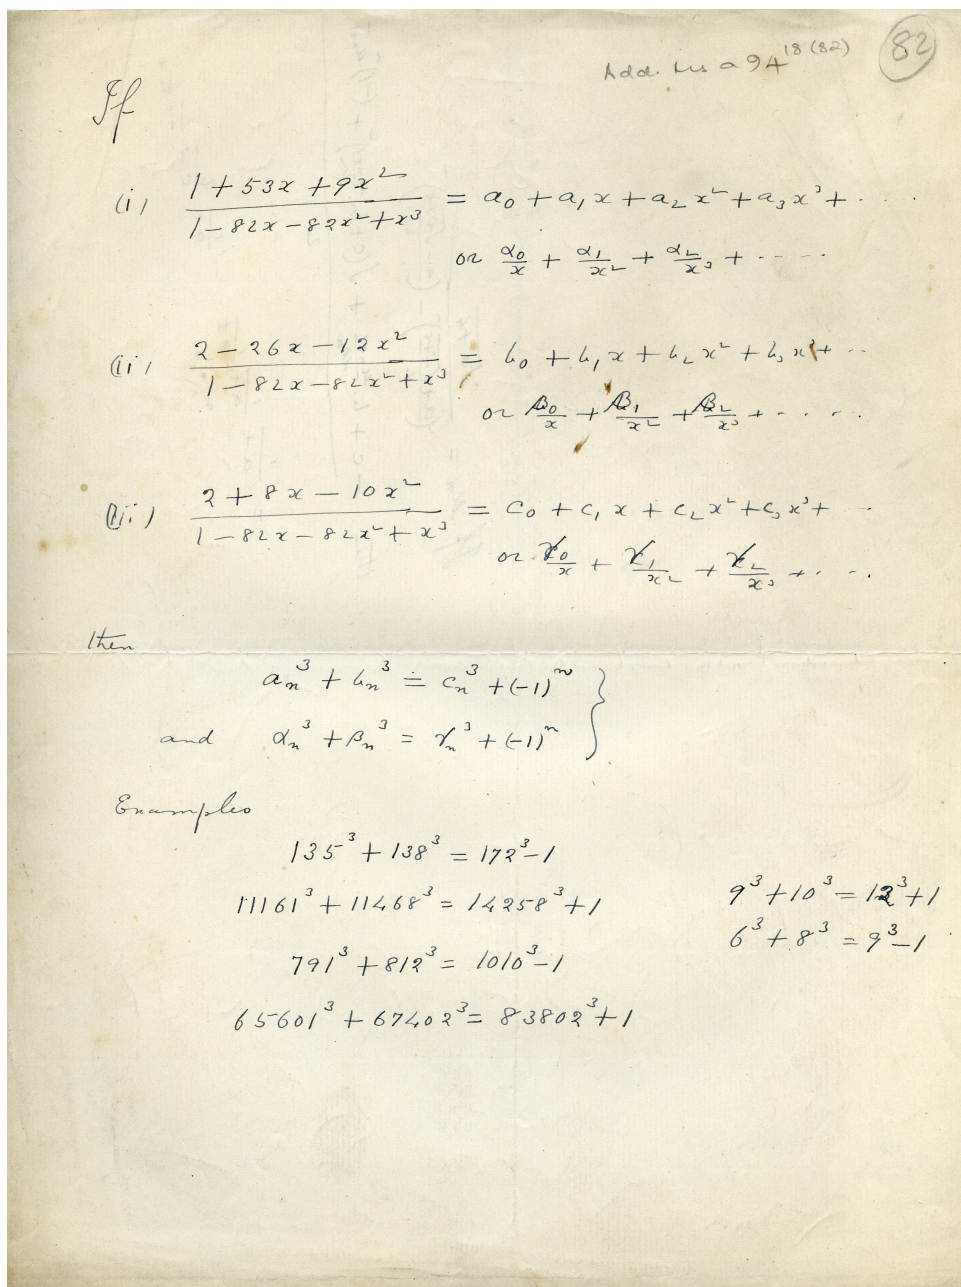 Add. Ms a 94^18 (82)
82
If
(i) (1 + 53x + 9x^2)/(1 - 82x - 82x^2 + x^3) = a_0 + a_1 x + a_2 x^2 + a_3 x^3 + ....
or α_0/x + α_1/x^2 + α_2/x^3 + .....
(ii) (2 - 26x - 12x^2)/(1 - 82x - 82x^2 + x^3) = b_0 + b_1 x + b_2 x^2 + b_3 x^3 + ...
or β_0/x + β_1/x^2 + β_2/x^3 + .....
(iii) (2 + 8x - 10x^2)/(1 - 82x - 82x^2 + x^3) = c_0 + c_1 x + c_2 x^2 + c_3 x^3 + ..
or γ_0/x + γ_1/x^2 + γ_2/x^3 + ....
then
a_n^3 + b_n^3 = c_n^3 + (-1)^n }
and α_n^3 + β_n^3 = γ_n^3 + (-1)^n
Examples
135^3 + 138^3 = 172^3 - 1
11161^3 + 11468^3 = 14258^3 + 1
791^3 + 812^3 = 1010^3 - 1
65601^3 + 67402^3 = 83802^3 + 1
9^3 + 10^3 = 12^3 + 1
6^3 + 8^3 = 9^3 - 1